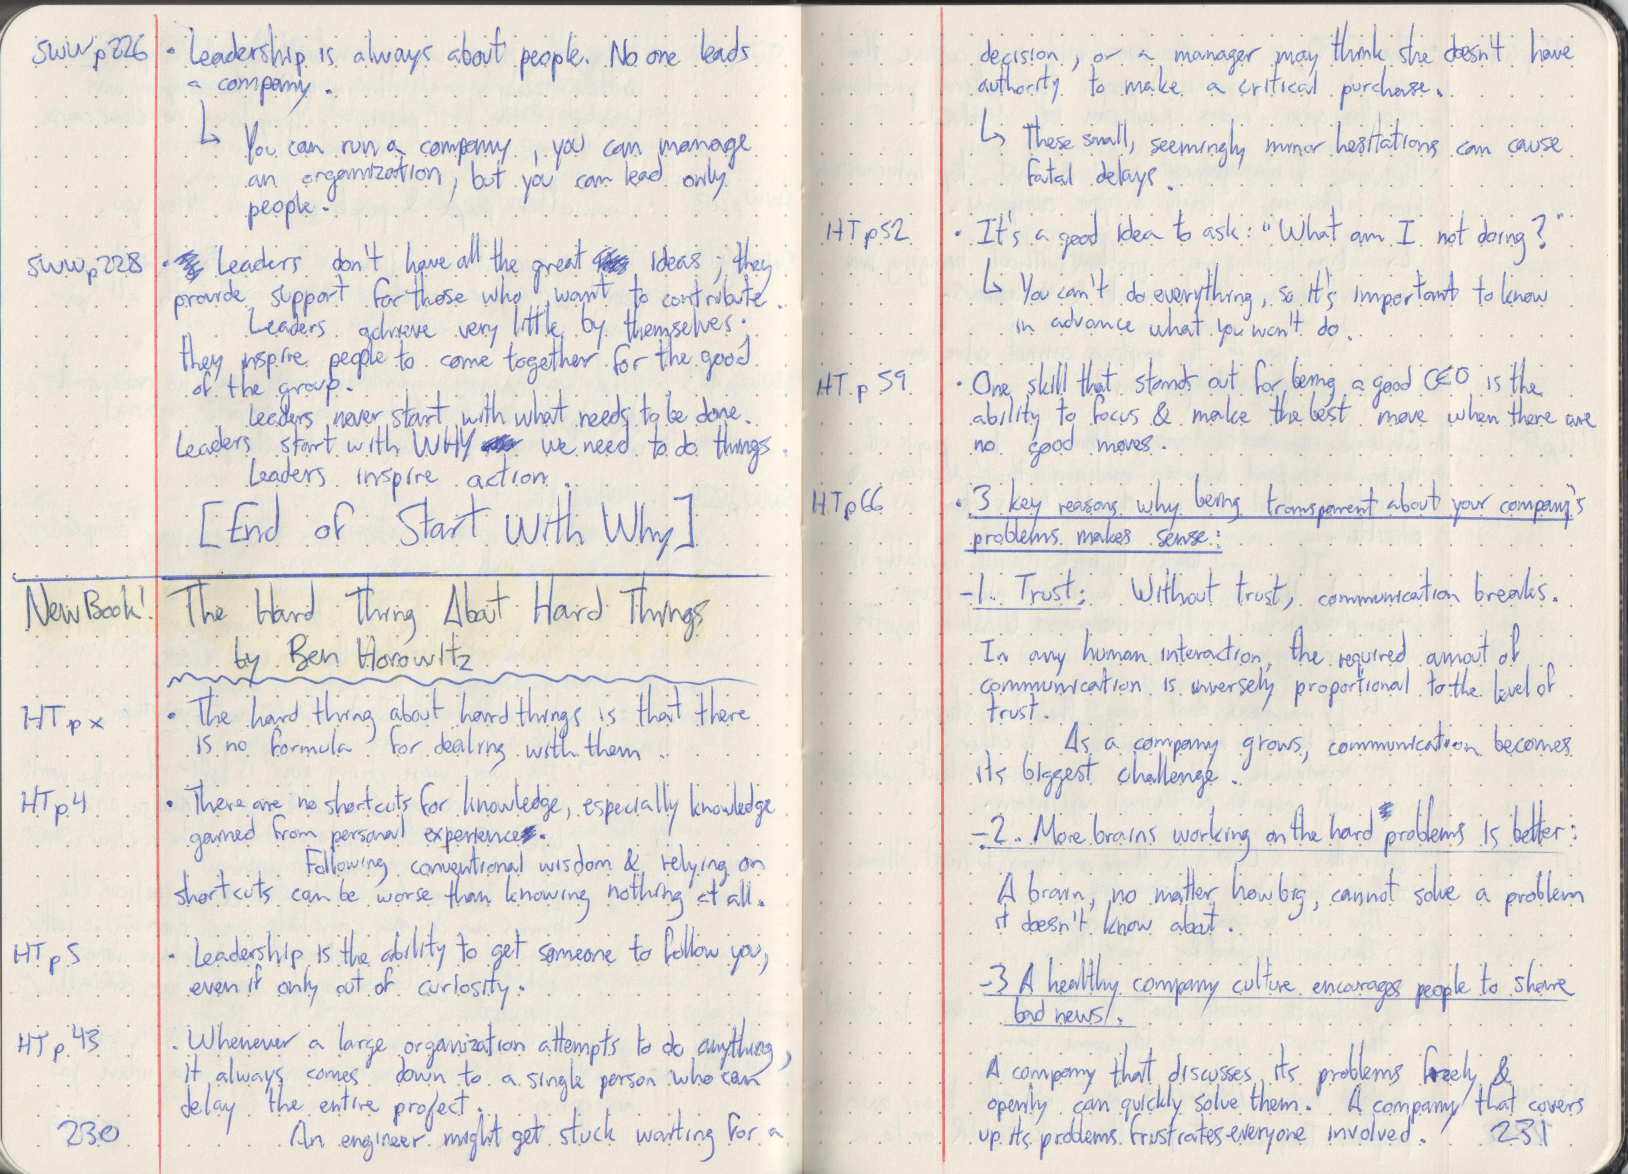 SWW p226 • Leadership is always about people. No one leads
a company.
↳ You can run a company, you can manage
an organization, but you can lead only
people.
SWW p228 • Leaders don't have all the great ideas; they
provide support for those who want to contribute.
Leaders achieve very little by themselves;
they inspire people to come together for the good
of the group.
Leaders never start with what needs to be done.
Leaders start with WHY we need to do things.
Leaders inspire action.
[End of Start With Why]
New Book! The Hard Thing About Hard Things
by Ben Horowitz
HT p x • The hard thing about hard things is that there
is no formula for dealing with them.
HT p4 • There are no shortcuts for knowledge, especially knowledge
gained from personal experience.
Following conventional wisdom & relying on
shortcuts can be worse than knowing nothing at all.
HT p5 • Leadership is the ability to get someone to follow you,
even if only out of curiosity.
HT p43 • Whenever a large organization attempts to do anything,
it always comes down to a single person who can
delay the entire project.
An engineer might get stuck waiting for a
230
decision, or a manager may think she doesn't have
authority to make a critical purchase.
↳ These small, seemingly minor hesitations can cause
fatal delays.
HT p52 • It's a good idea to ask: "What am I not doing?"
↳ You can't do everything, so it's important to know
in advance what you won't do.
HT p59 • One skill that stands out for being a good CEO is the
ability to focus & make the best move when there are
no good moves.
HT p66 • 3 key reasons why being transparent about your company's
problems makes sense:
-1. Trust: Without trust, communication breaks.
In any human interaction, the required amout of
communication is inversely proportional to the level of
trust.
As a company grows, communication becomes
its biggest challenge.
-2. More brains working on the hard problems is better:
A brain, no matter how big, cannot solve a problem
it doesn't know about.
-3 A healthy company culture encourages people to share
bad news.
A company that discusses its problems freely &
openly can quickly solve them. A company that covers
up its problems frustrates everyone involved.
231